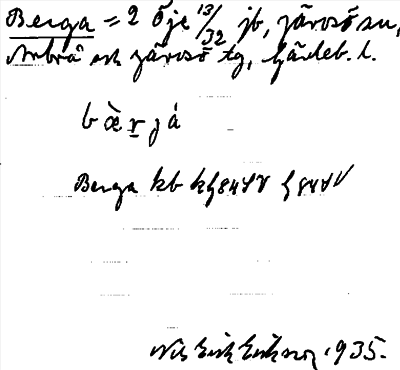 Berga = 2 Öje 13/32 jb, Järvsö sn,
Arbrå och Järvsö tg, Gävleb. l.
b æ̀ r j á
Berga kb
Nils Erik Eriksson 1935.